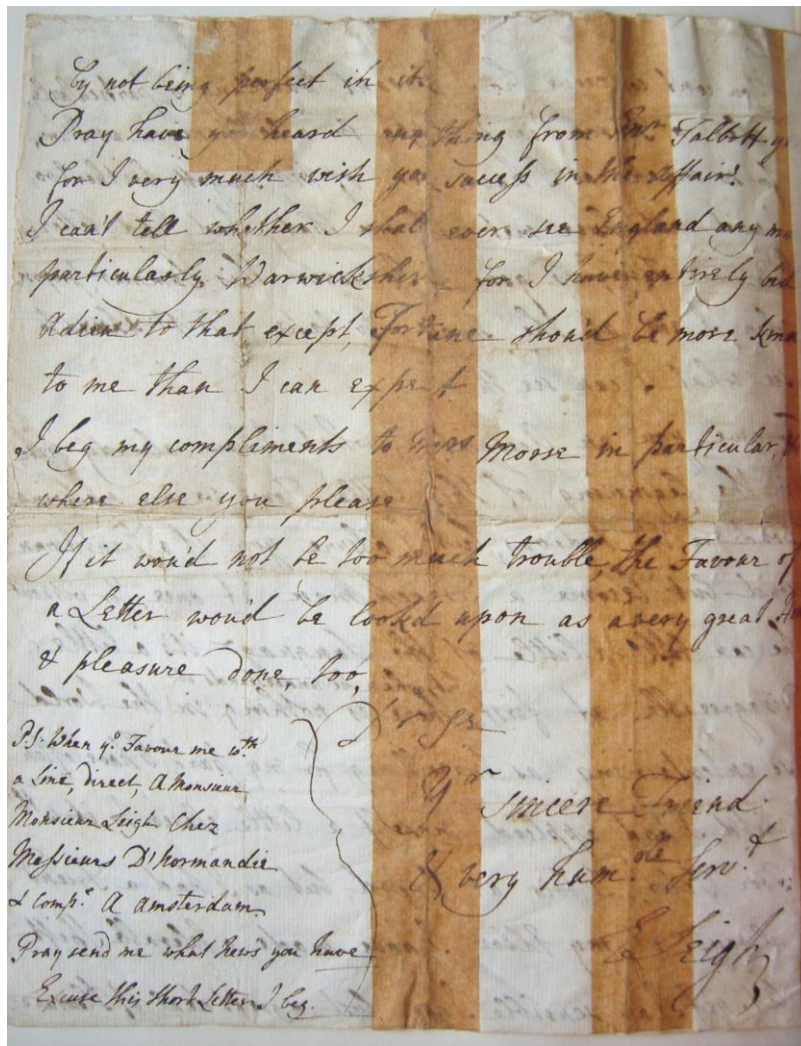 by not being perfect in it
Pray have you heard any thing from Talbott
for I very much wish you success in the affair!
I can't tell whether I shal ever see England any
particularly Warwickshire for I have entirely bid
Adieu to that except, Fortune shou'd be more kind
to me than I can expect
I beg my compliments to Morse in particular,
where else you please
If it wou'd not be too much trouble, the Favour of
a Letter wou'd be look'd upon as a very great
& pleasure done, too,
Dr Sr
Yr sincere Friend
& very humble Servt
E Leigh
P.S. When yo. Favour me wth.
a Line, direct, A Monsieur,
Monsieur Leigh Chez
Messieurs D'hormandie
& compe. A Amsterdam,
Pray send me what News you have
Excuse this short Letter I beg.